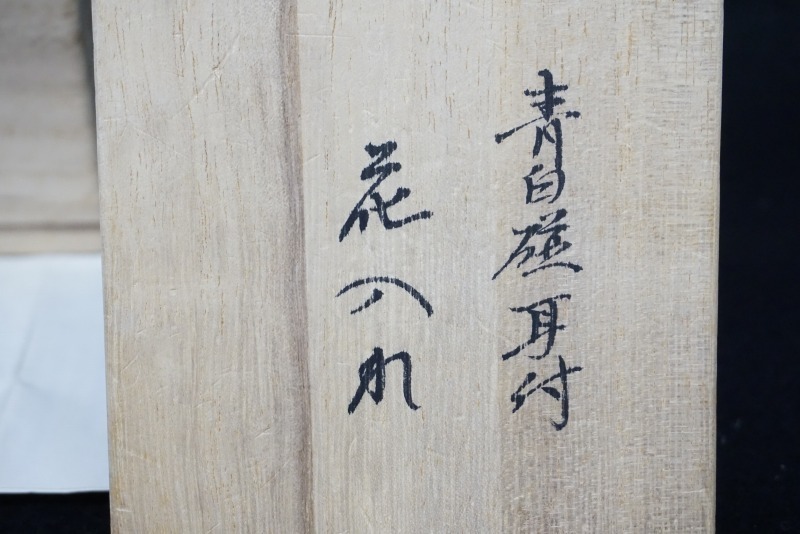 青白磁耳付
花入れ